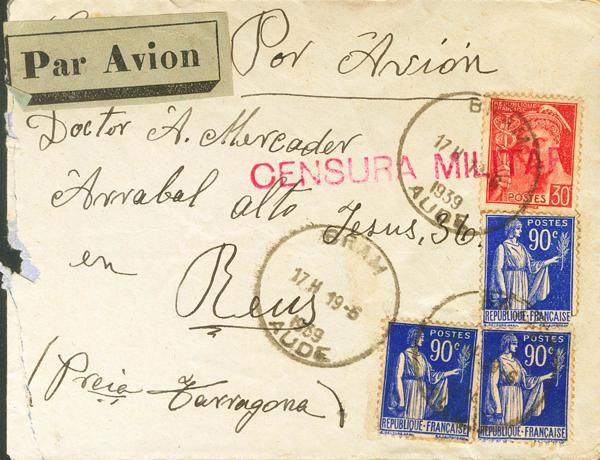 Par Avion
Por Avión
Doctor A. Mercader
CENSURA MILITAR
Arrabal alto Jesus, 36.
en
Reus
(Preia Tarragona)
BRAM
17.H 19-6
1939
AUDE
BRAM
17.H
1939
AUDE
REPUBLIQUE FRANÇAISE
POSTES 30c
POSTES
90c
REPUBLIQUE-FRANÇAISE
POSTES
90c
REPUBLIQUE-FRANÇAISE
POSTES
90c
REPUBLIQUE-FRANÇAISE